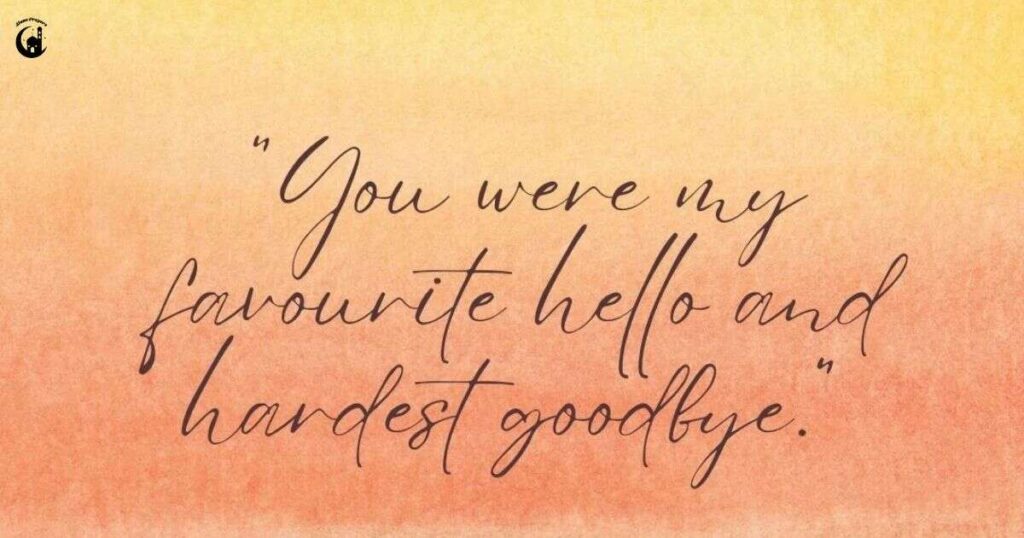 "You were my
favourite hello and
hardest goodbye."